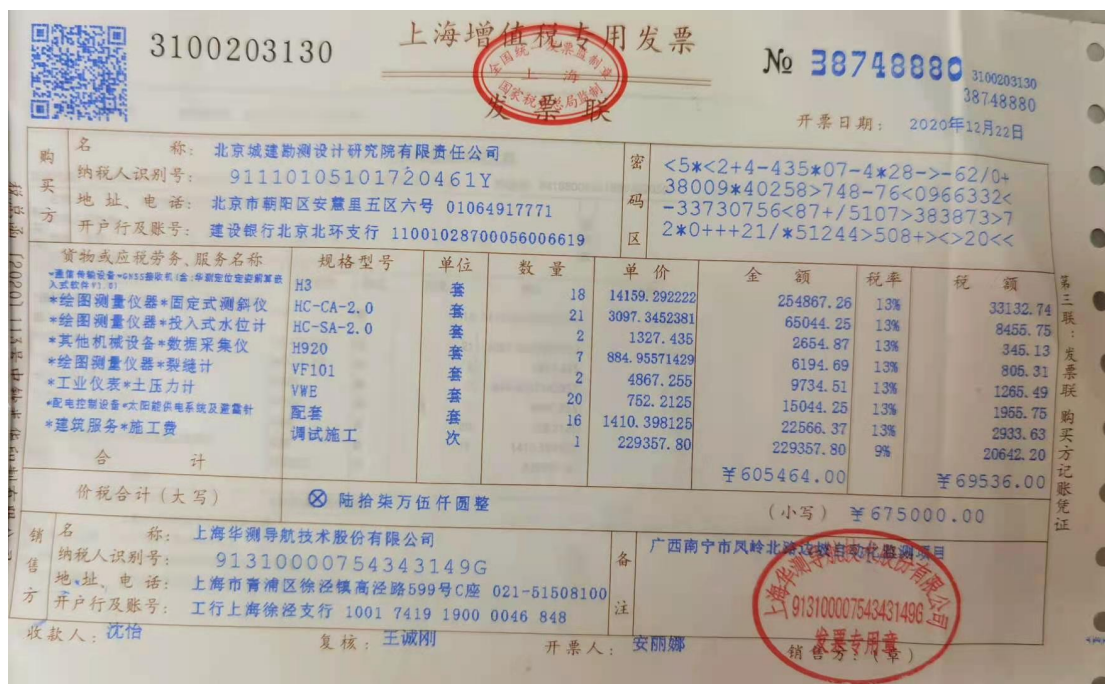 3100203130
上海增值税专用发票
全国统一发票监制章
上海
国家税务总局监制
发票联
№ 38748880
3100203130
38748880
开票日期： 2020年12月22日
购买方
名 称： 北京城建勘测设计研究院有限责任公司
纳税人识别号： 91110105101720461Y
地 址、电 话： 北京市朝阳区安慧里五区六号 01064917771
开户行及账号： 建设银行北京北环支行 11001028700056006619
密码区
<5*<2+4-435*07-4*28->-62/0+
38009*40258>748-76<0966332<
-33730756<87+/5107>383873>7
2*0+++21/*51244>508+><>20<<
货物或应税劳务、服务名称 规格型号 单位 数 量 单 价 金 额 税率 税 额
*通信传输设备*GNSS接收机(含:华测定位定姿解算嵌入式软件V1.0) H3 套 18 14159.292222 254867.26 13% 33132.74
*绘图测量仪器*固定式测斜仪 HC-CA-2.0 套 21 3097.3452381 65044.25 13% 8455.75
*绘图测量仪器*投入式水位计 HC-SA-2.0 套 2 1327.435 2654.87 13% 345.13
*其他机械设备*数据采集仪 H920 套 7 884.95571429 6194.69 13% 805.31
*绘图测量仪器*裂缝计 VF101 套 2 4867.255 9734.51 13% 1265.49
*工业仪表*土压力计 VWE 套 20 752.2125 15044.25 13% 1955.75
*配电控制设备*太阳能供电系统及避雷针 配套 套 16 1410.398125 22566.37 13% 2933.63
*建筑服务*施工费 调试施工 次 1 229357.80 229357.80 9% 20642.20
合 计 ￥605464.00 ￥69536.00
价税合计（大写） ⊗ 陆拾柒万伍仟圆整 （小写） ￥675000.00
销售方
名 称： 上海华测导航技术股份有限公司
纳税人识别号： 91310000754343149G
地 址、电 话： 上海市青浦区徐泾镇高泾路599号C座 021-51508100
开户行及账号： 工行上海徐泾支行 1001 7419 1900 0046 848
备注
广西南宁市凤岭北路边坡自动化监测项目
上海华测导航技术股份有限公司
91310000754343149G
发票专用章
收款人： 沈怡 复核： 王诚刚 开票人： 安丽娜 销售方：（章）
第三联：发票联 购买方记账凭证